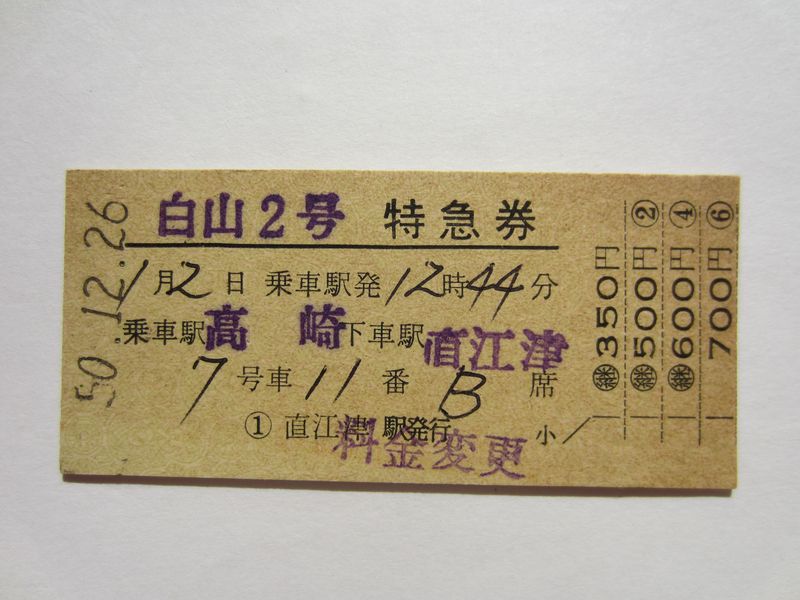 白山2号 特急券
1月2日 乗車駅発12時44分
乗車駅 高崎 下車駅 直江津
7号車11番B席
① 直江津駅発行
料金変更
小
50.12.26
350円
500円②
600円④
700円⑥